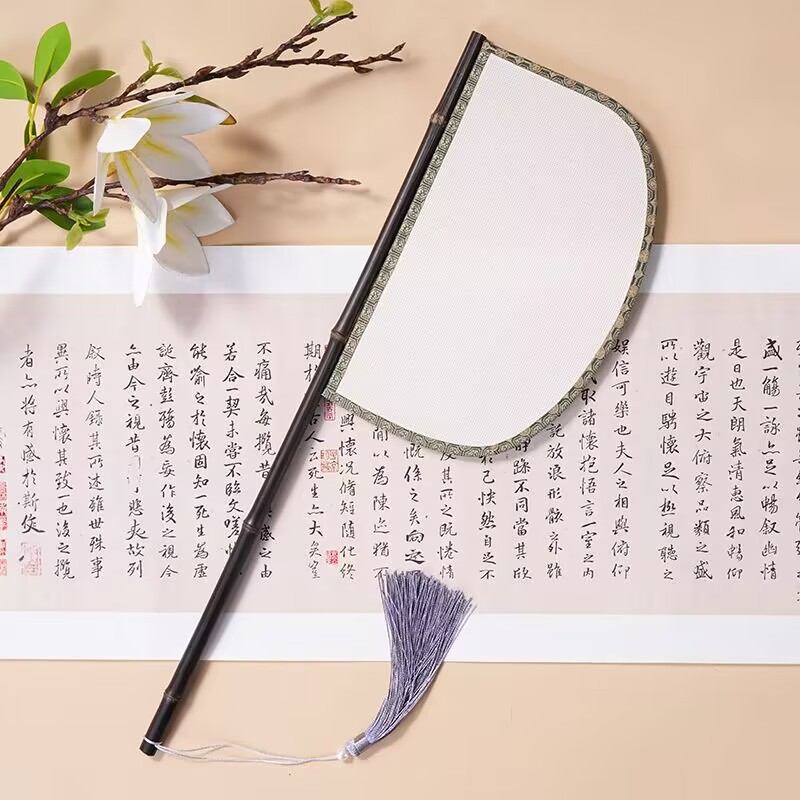 盛一觴一詠亦足以暢叙幽情
是日也天朗氣清惠風和暢仰
觀宇宙之大俯察品類之盛
所以遊目騁懷足以極視聽之
娛信可樂也夫人之相與俯仰
取諸懷抱悟言一室之內
放浪形骸之外雖
躁不同當其欣
於己快然自足不
其所之既惓情
慨係之矣向之
間以為陳迹猶不
興懷況脩短隨化終
期於古人云死生亦大矣豈
不痛哉每攬昔感之由
若合一契未嘗不臨文嗟悼
能喻之於懷固知一死生為虛
誕齊彭殤為妄作後之視今
亦由今之視昔悲夫故列
叙時人錄其所述雖世殊事
異所以興懷其致一也後之攬
者亦將有感於斯文